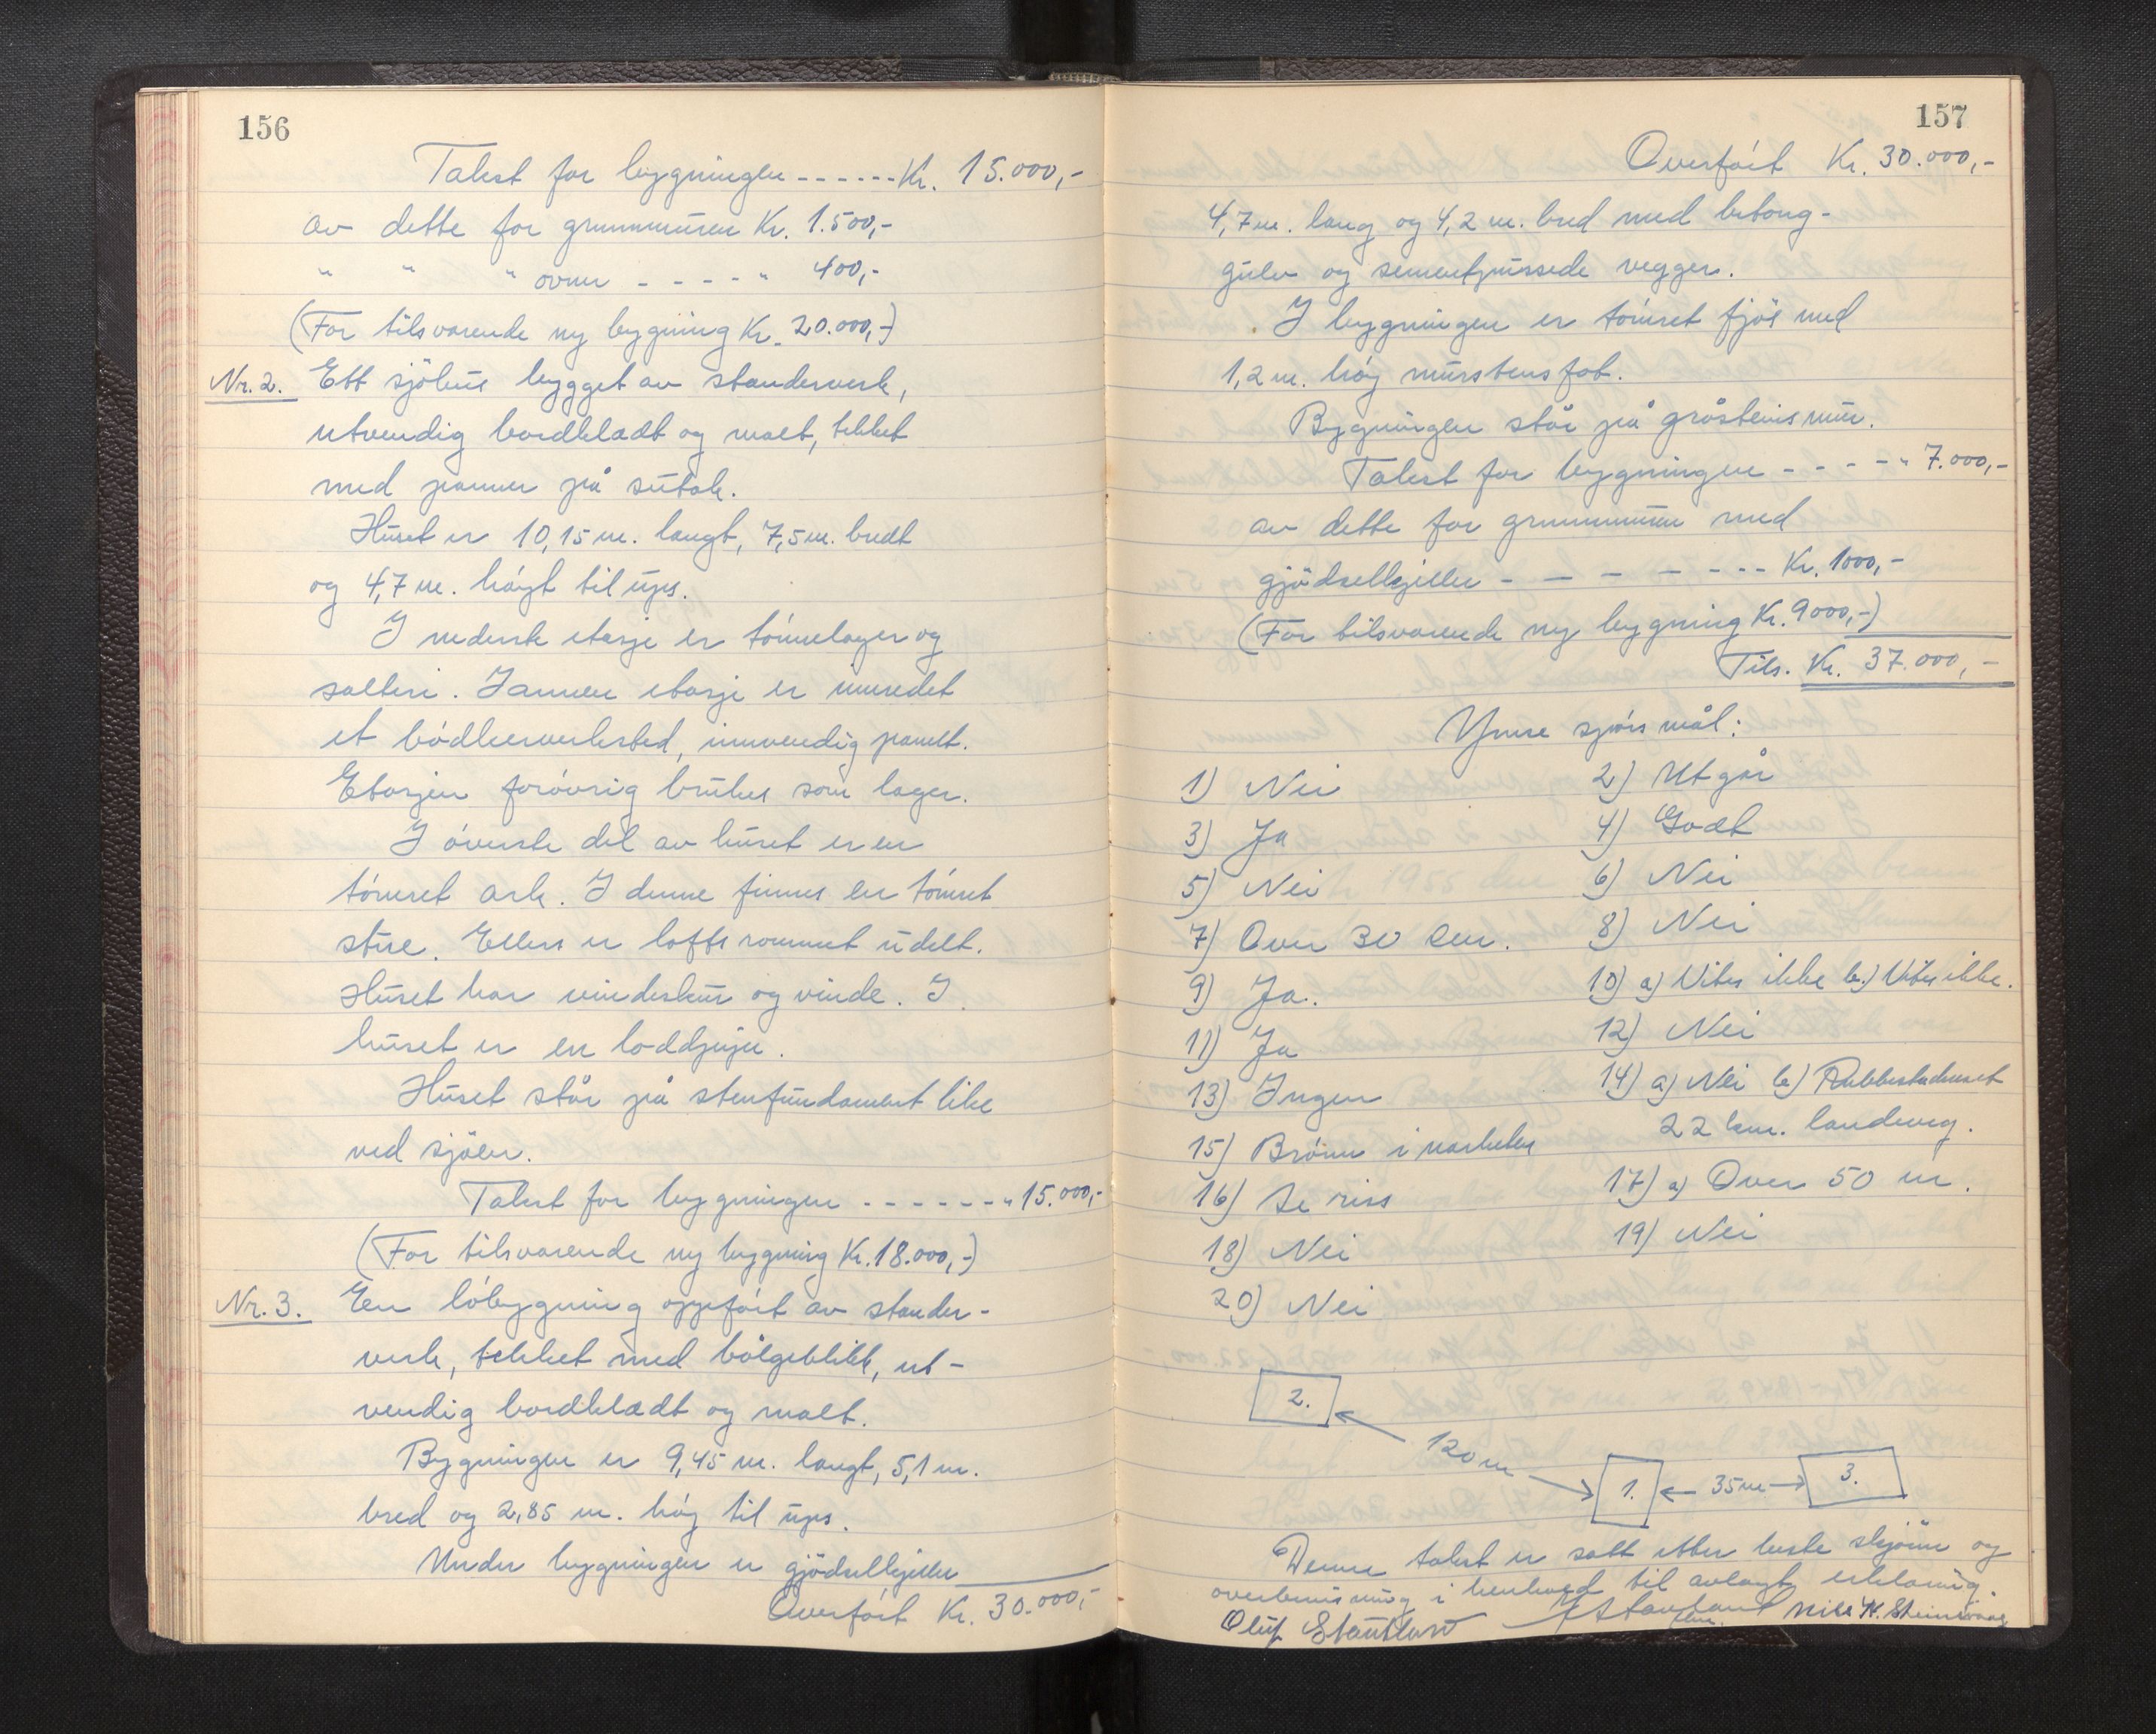 156
Takst for bygningen ------ Kr. 15.000,-
av dette for grunnmuren Kr. 1.500,-
" " " ovner - - - - " 400,-
(For tilsvarende ny bygning Kr. 20.000,-)
Nr. 2. Ett sjöhus bygget av standerverk,
utvendig bordklædt og malt, tekket
med panner på sutak.
Huset er 10,15 m. langt, 7,5 m. bredt
og 4,7 m. høyt til ups.
I nederste etasje er tønnelager og
salteri. I annen etasje er innredet
et bødkerverksted, innvendig panelt.
Etasjen forøvrig brukes som lager.
I øverste del av huset er en
tømret ark. I denne finnes en tømret
stue. Ellers er loftsrommet udelt.
Huset har vindeskur og vinde. I
huset er en loddpipe.
Huset står på stenfundament like
ved sjöen.
Takst for bygningen ------- " 15.000,-
(For tilsvarende ny bygning Kr. 18.000,-)
Nr. 3. En løbygning oppført av stander-
verk, tekket med bølgeblikk, ut-
vendig bordklædt og malt.
Bygningen er 9,45 m. langt, 5,1 m.
bred og 2,85 m. høy til ups.
Under bygningen er gjödselkjeller
Overført Kr. 30.000,-
157
Overført Kr. 30.000,-
4,7 m. lang og 4,2 m. bred med betong-
gulv og sementpussede vegger.
I bygningen er tømret fjös med
1,2 m. høy murstensfot.
Bygningen står på gråsteinsmur.
Takst for bygningen - - - - - " 7.000,-
av dette for grunnmuren med
gjödselkjeller - - - - - - - - Kr. 1000,-
(For tilsvarende ny bygning Kr. 9000,-)
Tils. Kr. 37.000,-
Ymse spörsmål:
1) Nei 2) Utgår
3) Ja 4) Godt
5) Nei 6) Nei
7) Over 30 cm. 8) Nei
9) Ja. 10) a) Vites ikke b.) Vites ikke.
11) Ja 12) Nei
13) Ingen 14) a) Nei b) Rubbestadneset
22 km. landveg.
15) Brønn i nærheten
16) Se riss 17) a) Over 50 m.
18) Nei 19) Nei
20) Nei
2.
120 m
1.
35 m
3.
Denne takst er satt etter beste skjönn og
overbevisning i henhold til avlagt erklæring.
Oluf Stautland Nils H. Steinsvaag